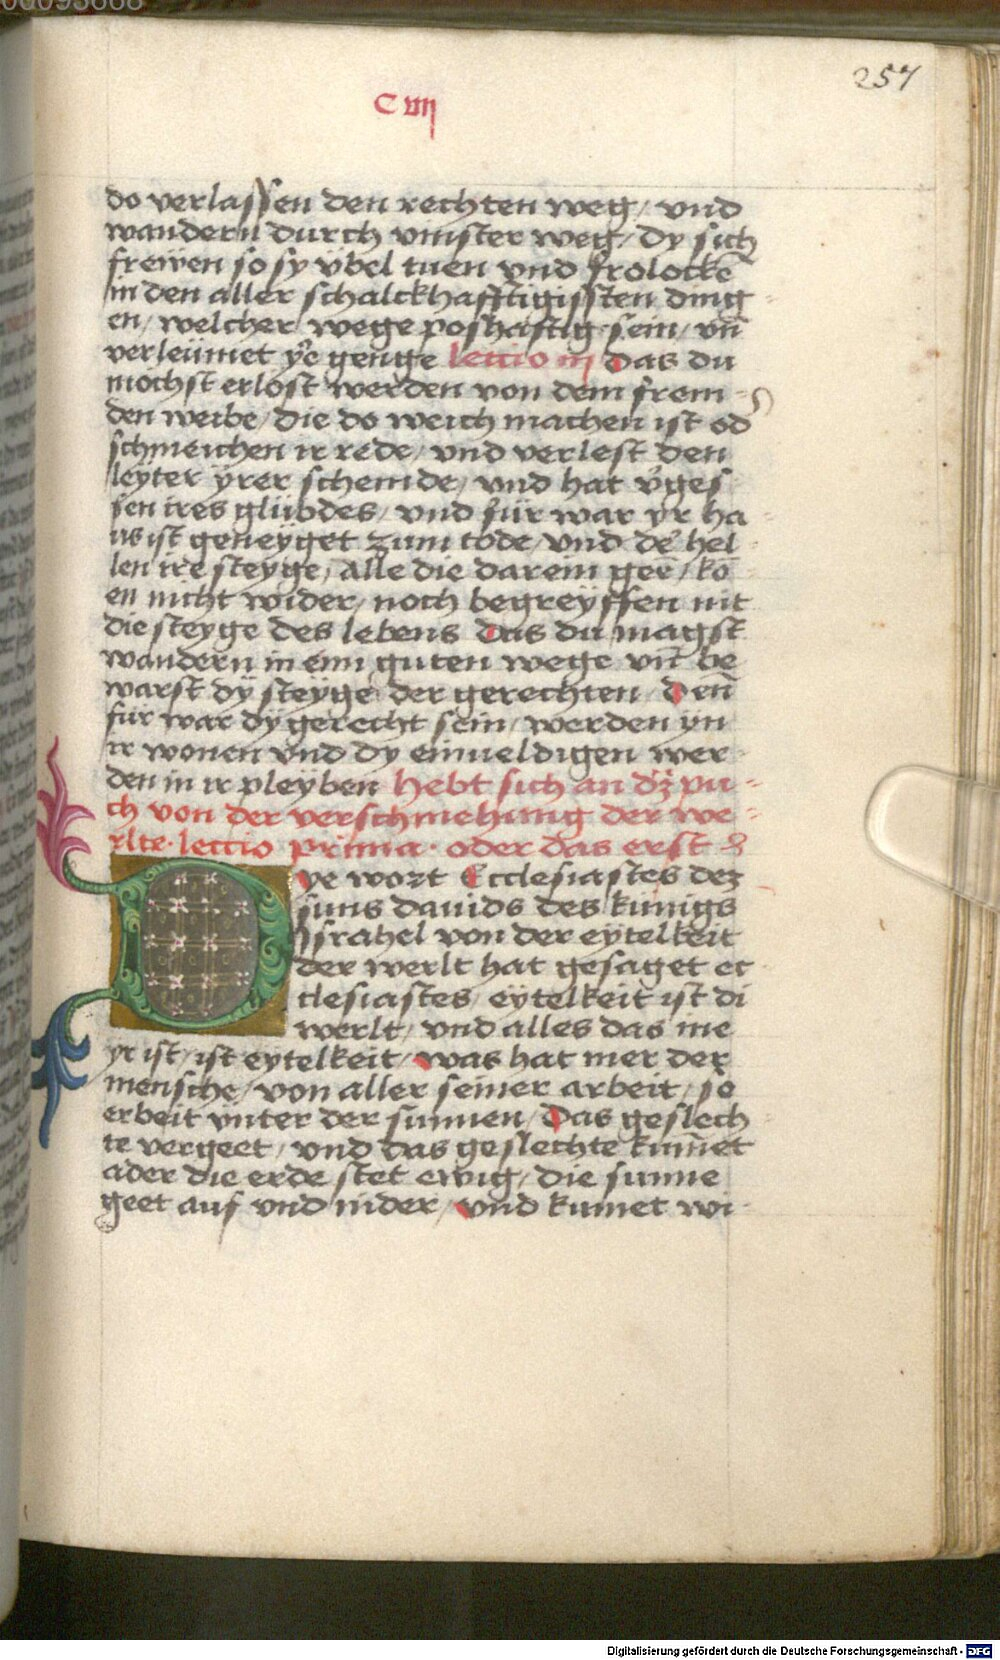 257
C viij
do verlassen den rechten weg / vnd
wandern durch vinster weg / dy sich
freẅen so sy v̈bel tuen vnd frolockē
in den aller schalckhafftigissten ding
en / welcher wege poshaftig sein / vn̄
verleümet yr̄e genge lectio iij Das du
mochst erlost werden von dem frem
den weibe / die do weich machen ist od̾
schmeichen ir rede / vnd verlest den
leyter yrer schemde / vnd hat v̾ges
sen ires glübdes / vnd fur war yr ha
us ist geneyget zum tode / vnd de̾ hel
len ire steyge / alle die darein gen / ko
en nicht wider / noch begreyffen nit
die steyge des lebens Das du magst
wandern in eim guten wege vn̄ be
warst dÿ steÿge der gerechten / Den̄
fur war dy gerecht sein / werden yn
ir wonen vnd dy einueldigen wer
den in ir pleyben hebt sich an dz pu
ch von der verschmehung der we
rlte · lectio prima · oder das erst
Dye wort Ecclesiastes dez
suns dauids des kunigs
Israhel von der eytelkeit
der werlt hat gesaget ec
clesiastes / eytelkeit ist di
werlt / vnd alles das me
yr ist / ist eytelkeit / was hat mer der
mensche / von aller seiner arbeit / so
erbeit vnter der sunnen / Das geslech
te vergeet / vnd das geslechte kum̄et
ader die erde stet ewig / die sunne
geet auf vnd nider / vnd kumet wi
Digitalisierung gefördert durch die Deutsche Forschungsgemeinschaft - DFG